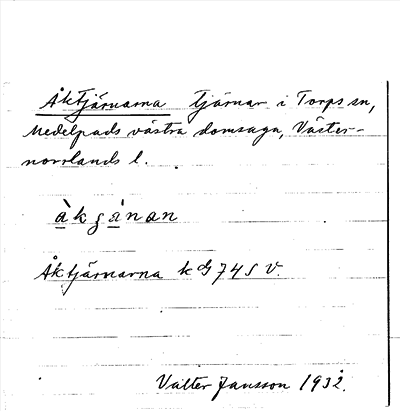 Åktjärnarna tjärnar i Torps sn,
Medelpads västra domsaga, Väster-
norrlands l.
àkgànan
Åktjärnarna k G 74 S V.
Valter Jansson 1932.